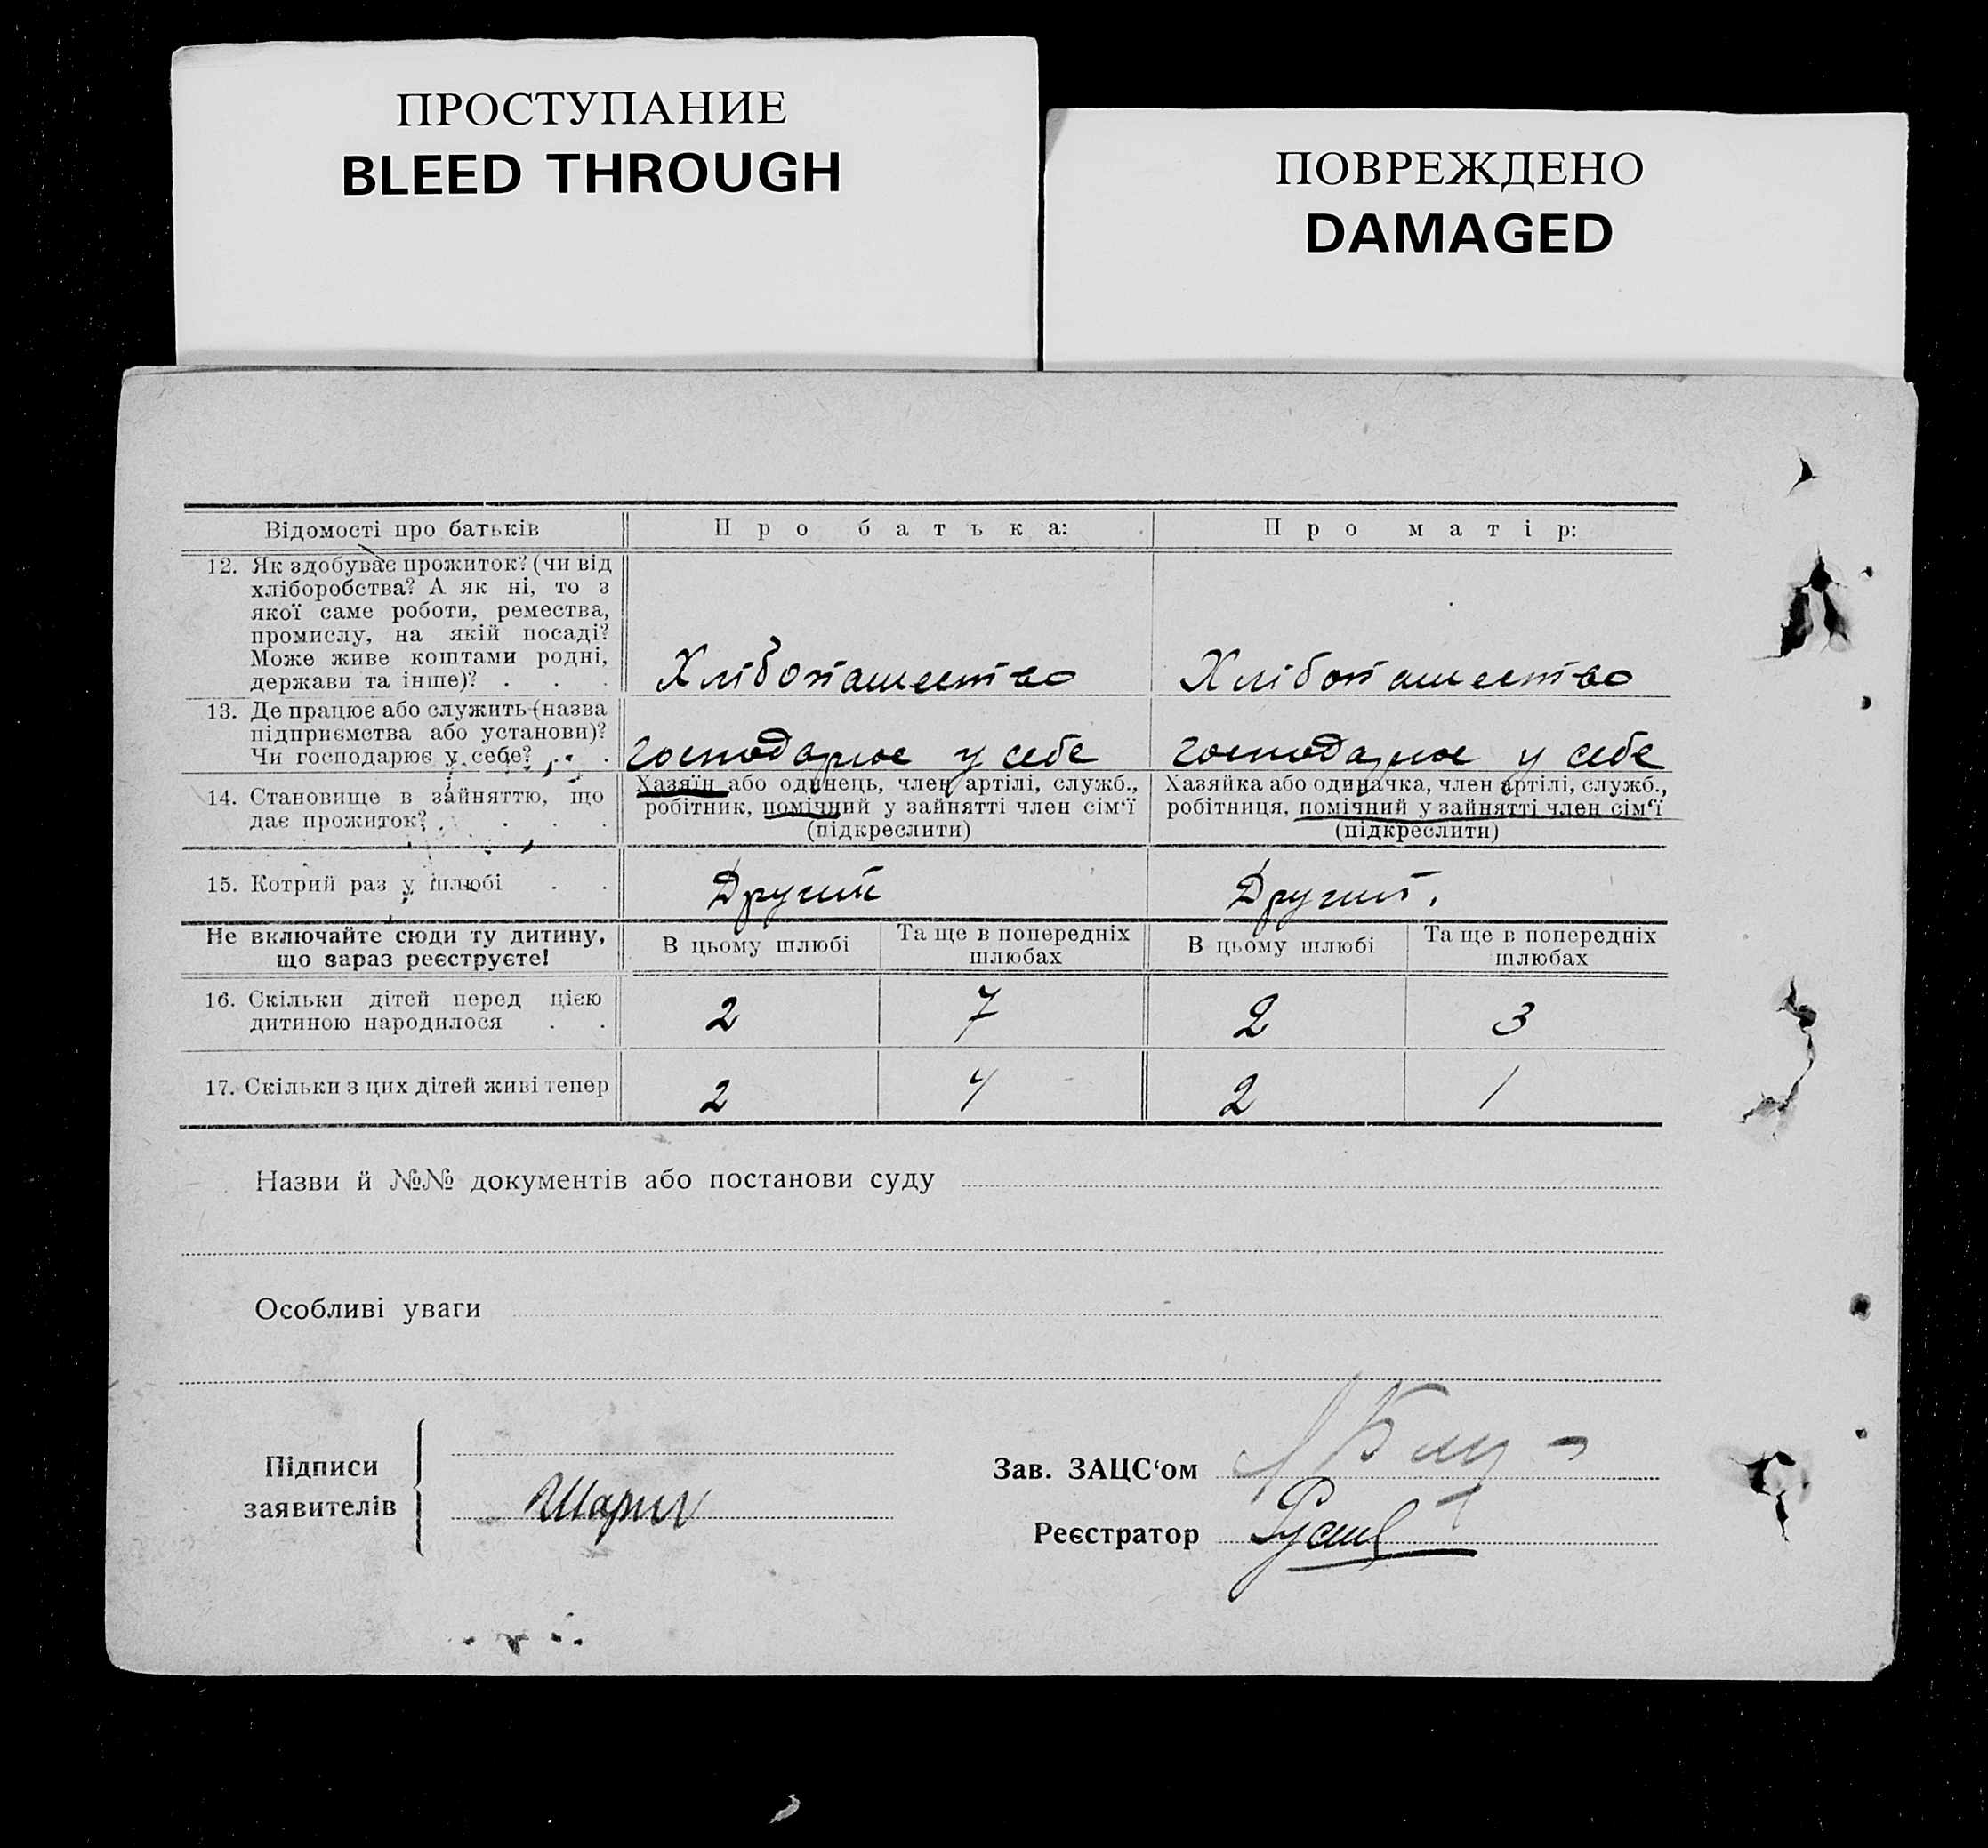 ПРОСТУПАНИЕ
BLEED THROUGH
ПОВРЕЖДЕНО
DAMAGED
Відомості про батьків
Про батька:
Про матір:
12. Як здобуває прожиток? (чи від
хліборобства? А як ні, то з
якої саме роботи, ремества,
промислу, на якій посаді?
Може живе коштами родні,
держави та інше)? . . .
Хлібопашество
Хлібопашество
13. Де працює або служить (назва
підприємства або установи)?
Чи господарює у себе? . . .
господарює у себе
господарює у себе
14. Становище в зайняттю, що
дає прожиток? . . . .
Хазяїн або одинець, член артілі, служб.,
робітник, помічний у зайнятті член сім‘ї
(підкреслити)
Хазяйка або одиначка, член артілі, служб.,
робітниця, помічний у зайнятті член сім‘ї
(підкреслити)
15. Котрий раз у шлюбі . .
Другий
Другий.
Не включайте сюди ту дитину,
що зараз реєструєте!
В цьому шлюбі
Та ще в попередніх
шлюбах
В цьому шлюбі
Та ще в попередніх
шлюбах
16. Скільки дітей перед цією
дитиною народилося . .
2
7
2
3
17. Скільки з цих дітей живі тепер
2
4
2
1
Назви й №№ документів або постанови суду
Особливі уваги
Підписи
заявителів
Зав. ЗАЦС‘ом
Реєстратор